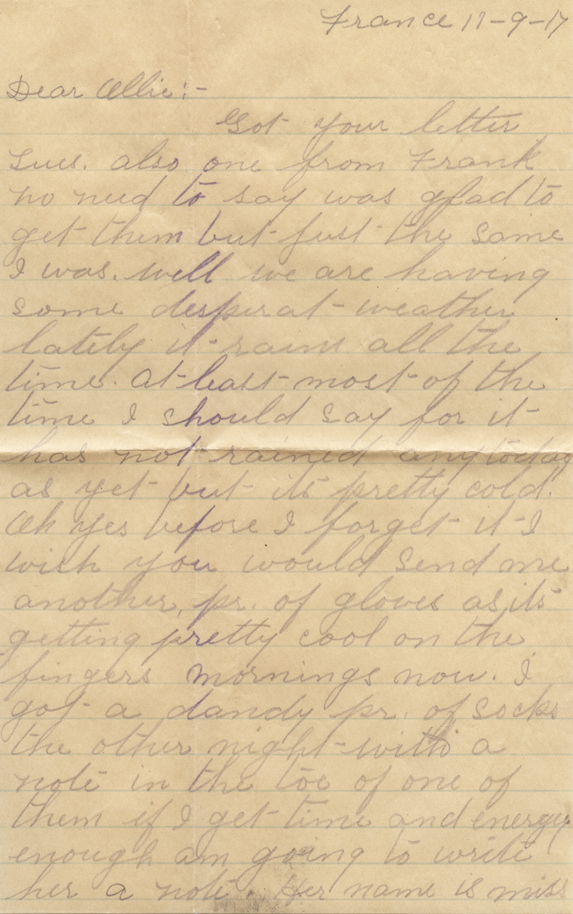 France 11-9-17
Dear Ollie:-
Got your letter
Tues. also one from Frank
no need to say was glad to
get them but just the same
I was. well we are having
some desperat weather
lately it rains all the
time. at least most of the
time I should say for it
has not rained any today
as yet but its pretty cold.
Oh yes before I forget it I
wish you would send me
another pr. of gloves as its
getting pretty cool on the
fingers mornings now. I
got a dandy pr. of socks
the other night with a
note in the toe of one of
them if I get time and energy
enough am going to write
her a note. Her name is miss